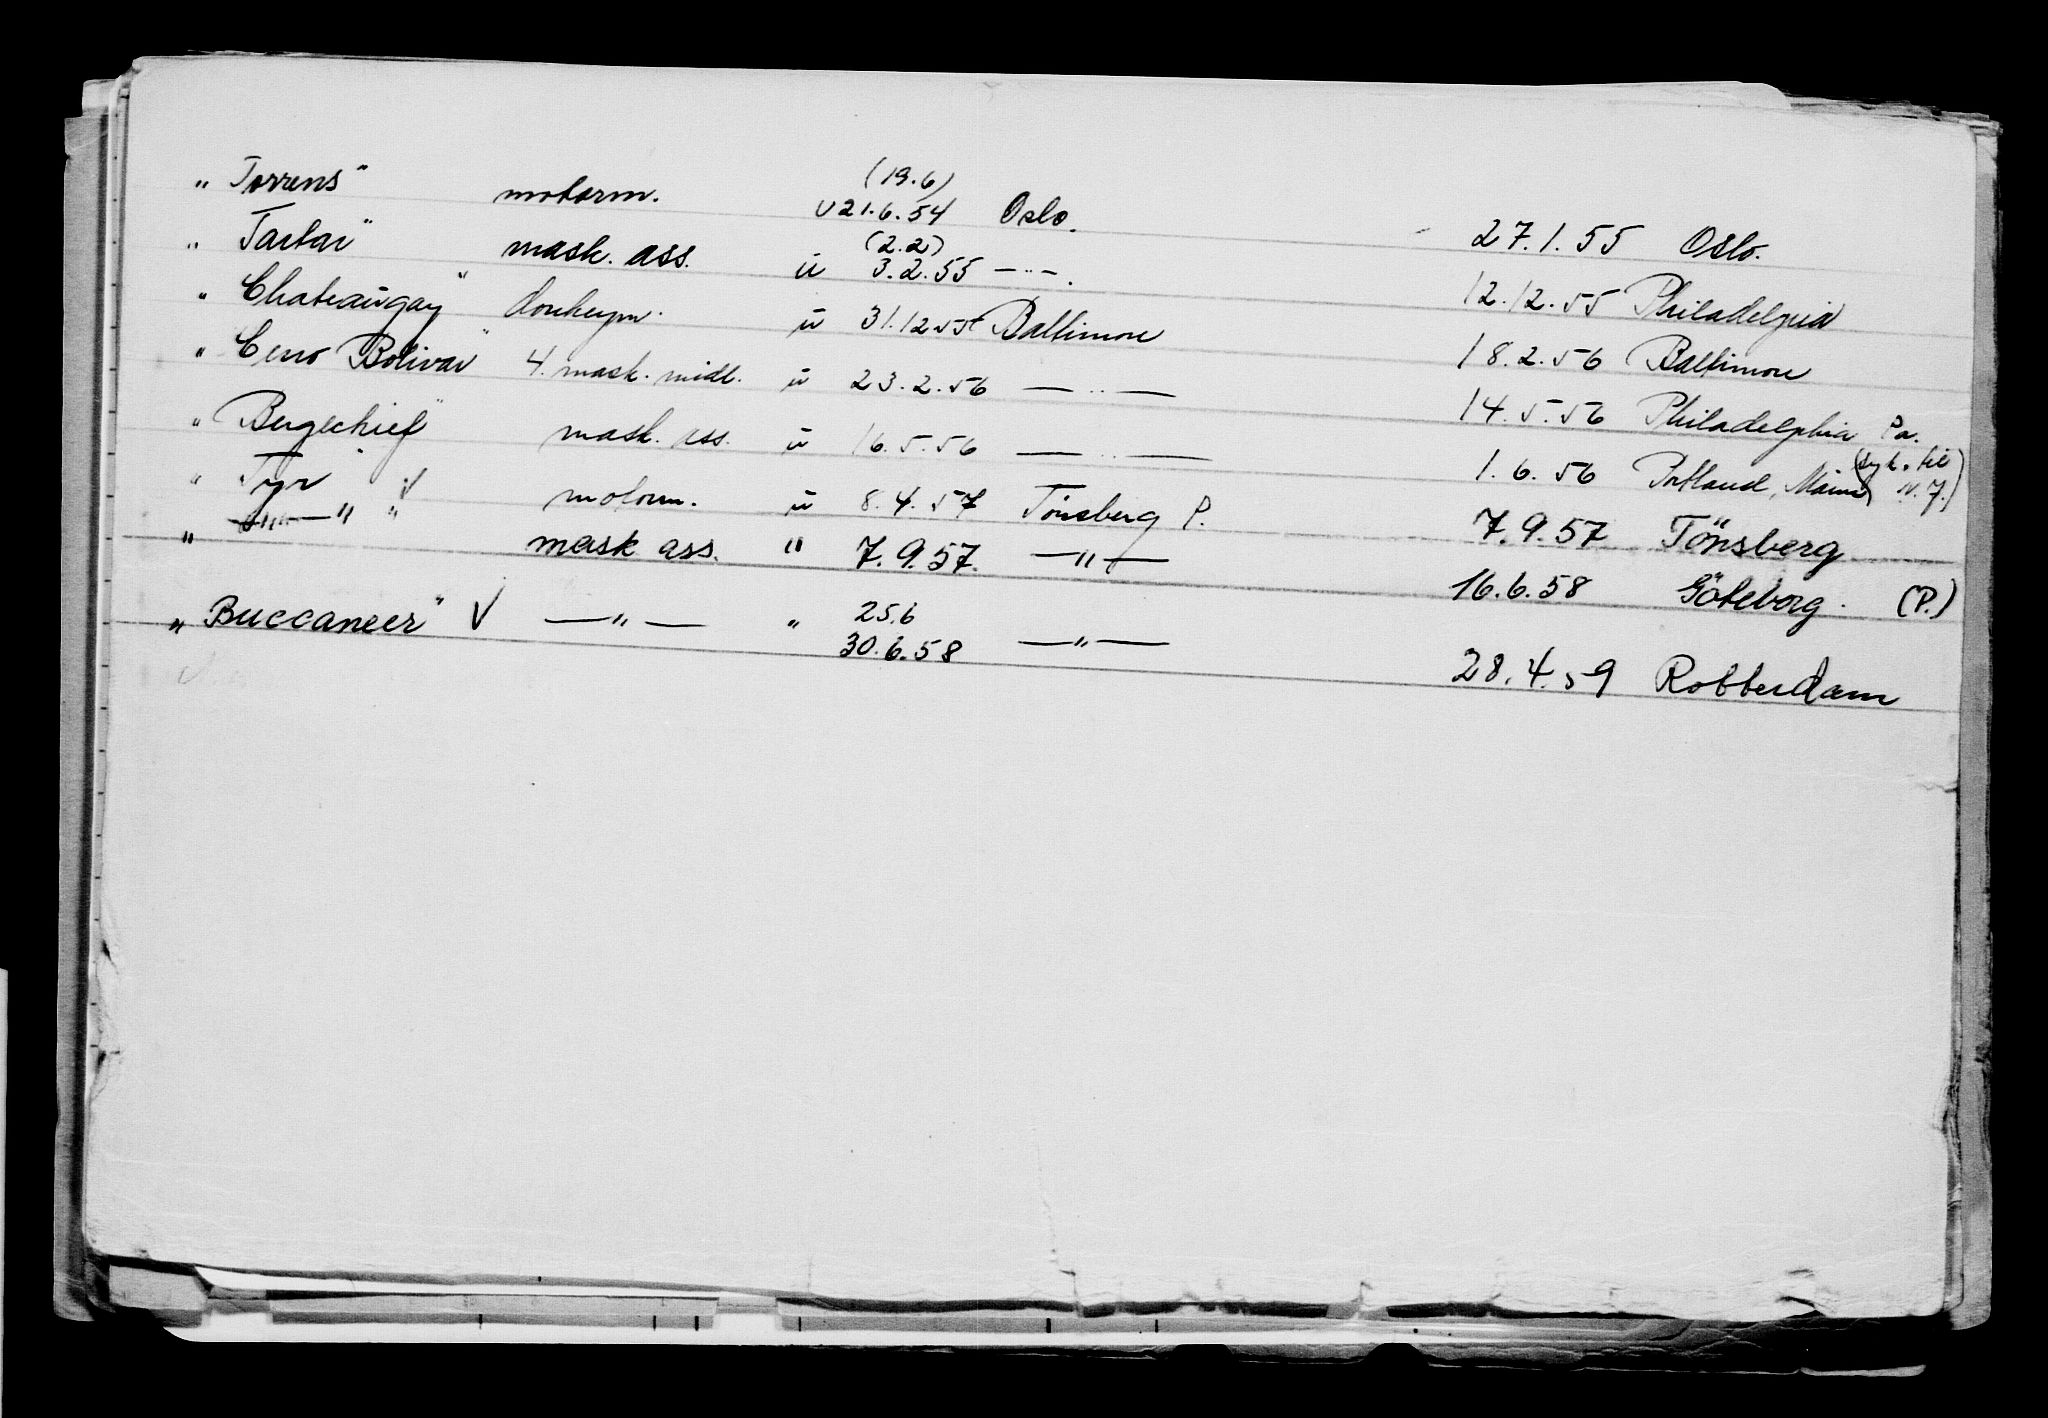 (19.6)
„ Torrens" motorm. u 21.6.54 Oslo. 27.1.55 Oslo.
(2.2)
" Tartar" mask. ass. u 3.2.55 — " —. 12.12.55 Philadelpia
" Chateaugay" donkeym. u 31.12.55 Baltimore 18.2.56 Baltimore
" Cerro Bolivar" 4. mask. midl. u 23.2.56 — " — 14.5.56 Philadelphia Pa.
" Bergechief" mask. ass. u 16.5.56 — " — 1.6.56 Portland, Maine (syk. til N.J.)
" Tyr" √ motorm. u 8.4.57 Tönsberg P. 7.9.57 Tönsberg
" — " — " " mask ass. " 7.9.57. — " — 16.6.58 Göteborg. (P.)
25.6
„ Buccaneer" V — " — " 30.6.58 — " — 28.4.59 Rotterdam